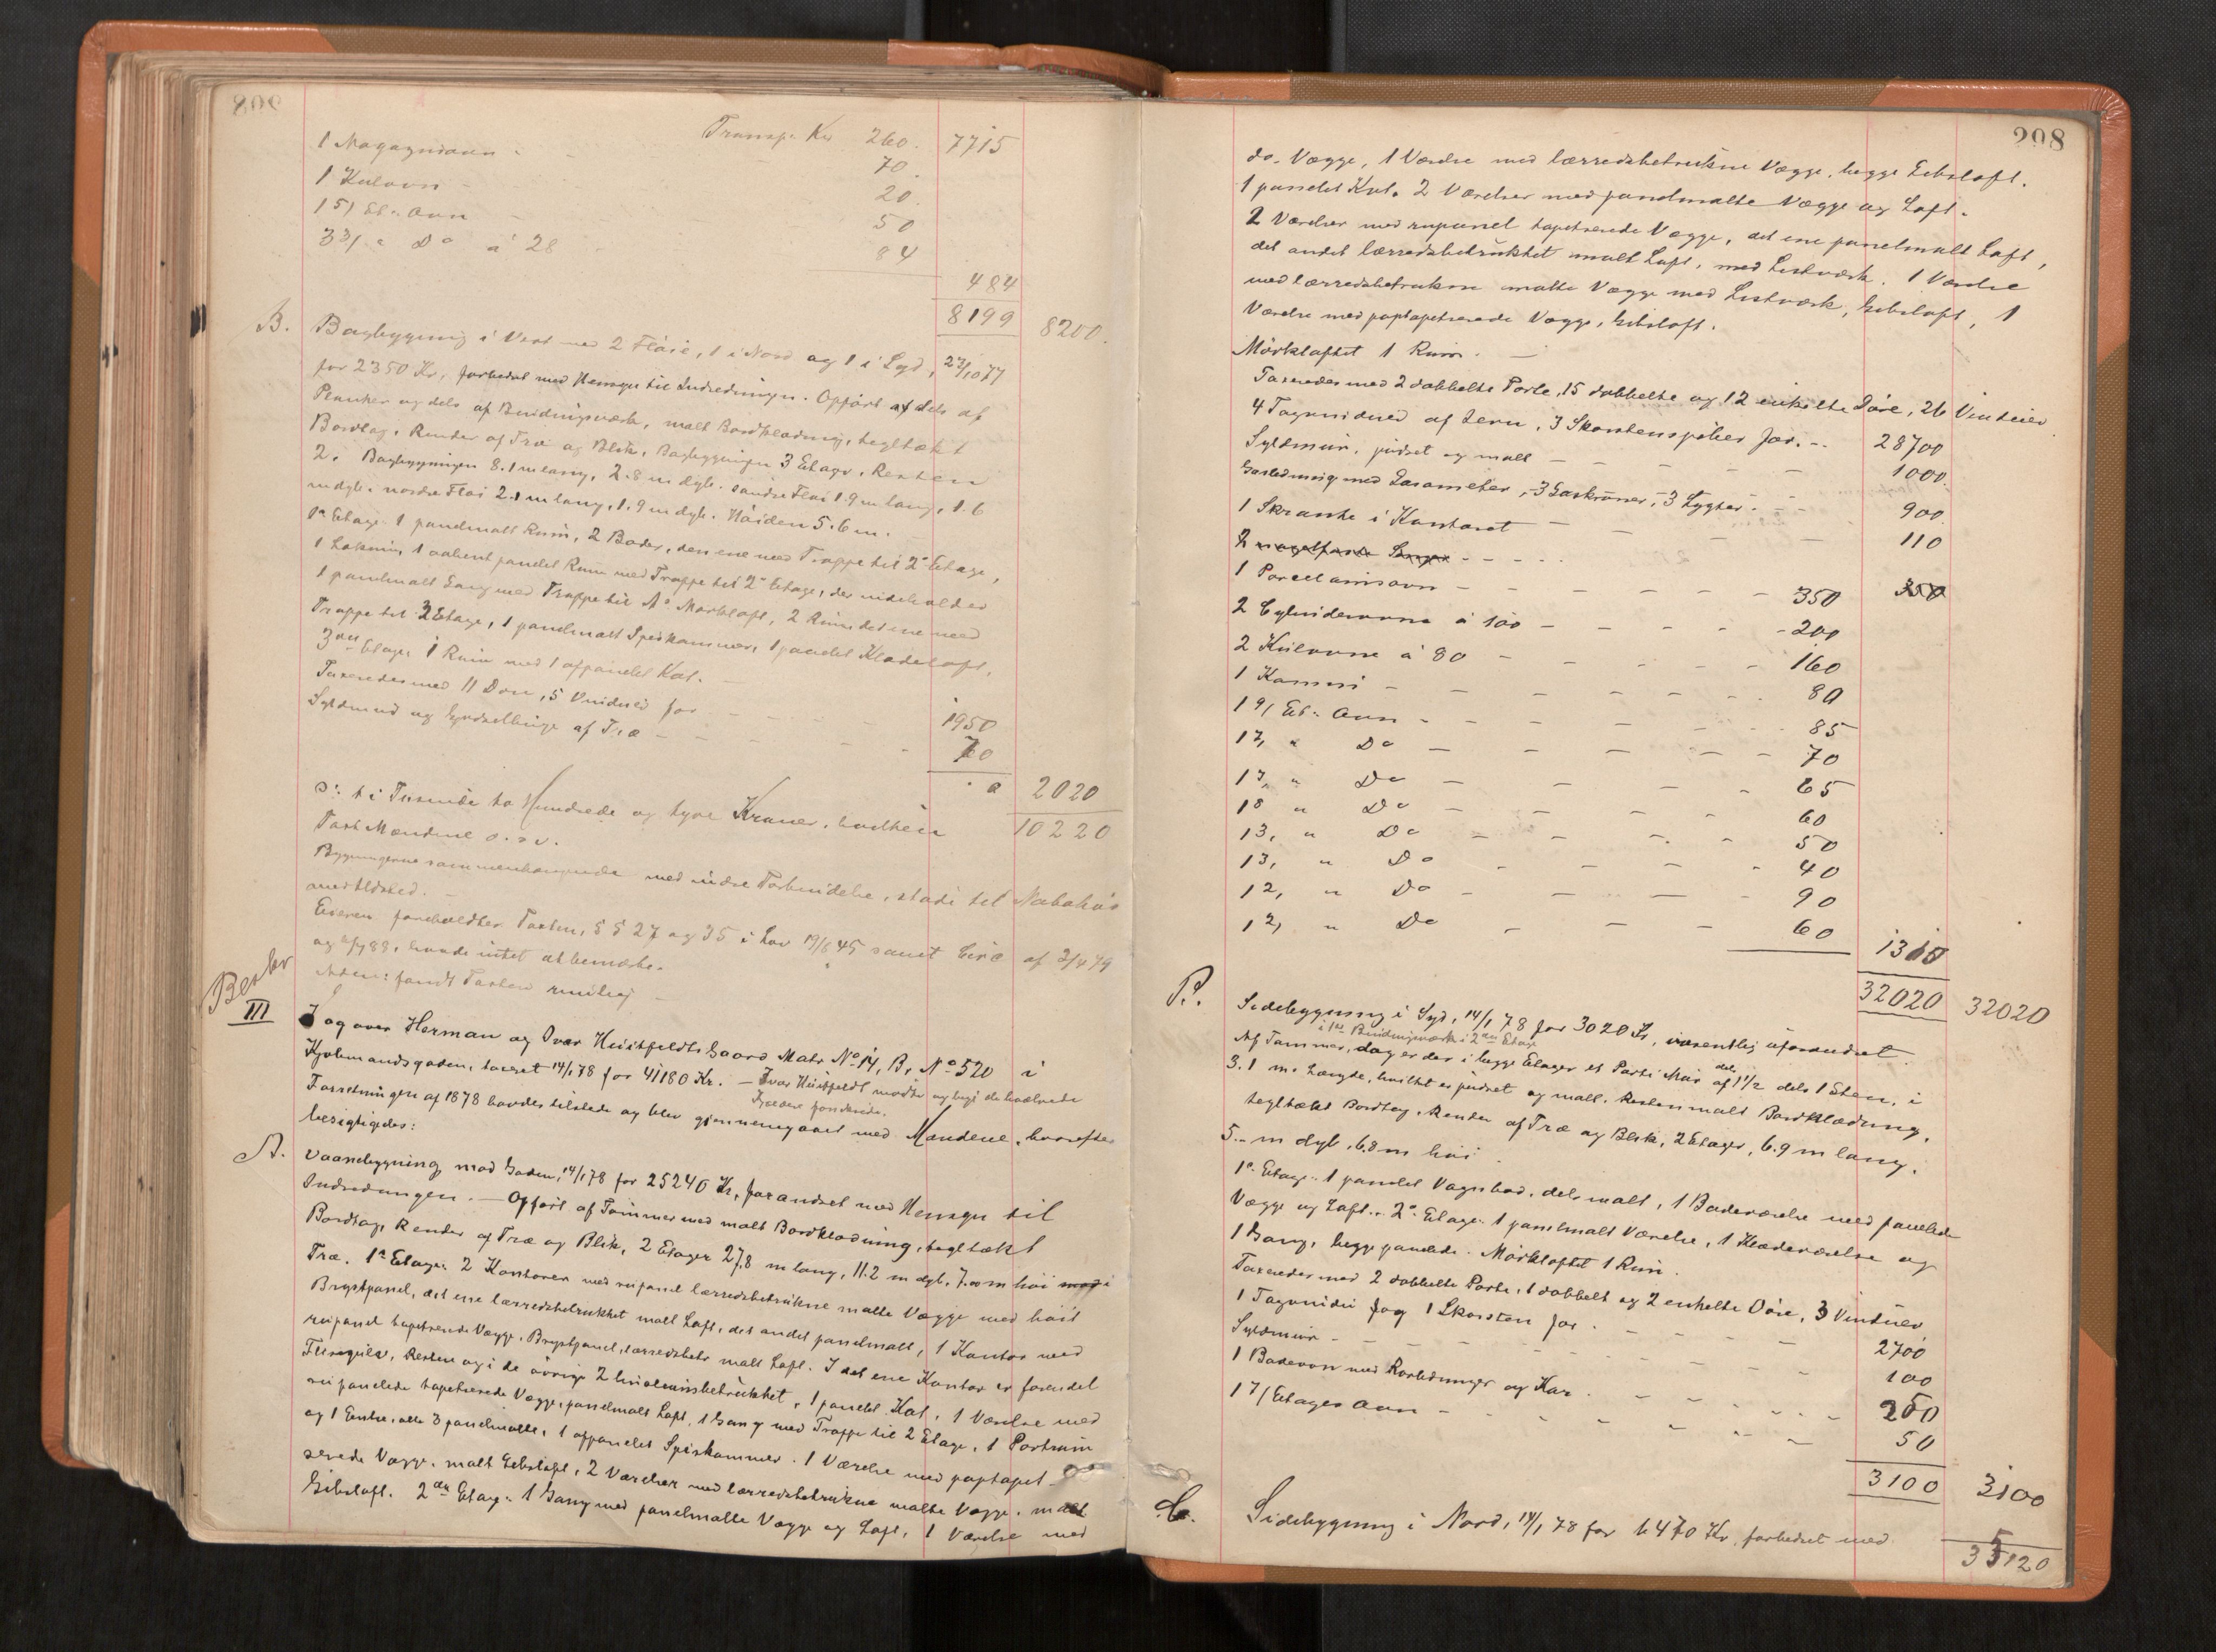 Transp. Kr 260. 7715
1 Magazinovn - - 70.
1 Kulovn - 20.
1 5/ Et. Ovn 50
3 3/ " Do á 28 84
484
8199 8200.
B. Bagbygning i Vest med 2 Fløie, 1 i Nord og 1 i Syd, 23/10 77
for 2350 Kr, forbedret med Hensyn til Indredningen. Opført af dels af
Planker og dels af Bindingsværk, malt Bordklædning, tegltækt
Bordtag, Render af Træ og Blik, Bagbygningen 3 Etager, Resten
2. Bagbygningen 8.1 m lang, 2.8 m dyb. søndre Fløi 1.9 m lang, 1.6
m dyb. nordre Fløi 2.1 m lang, 1.9 m dyb. Høiden 5.6 m.
1e Etage 1 panelmalt Rum, 2 Boder, den ene med Trappe til 2e Etage,
1 Lokum, 1 aabent panelet Rum med Trappe til 2e Etage, der indeholder
1 panelmalt Gang med Trappe til Mørkloft, 2 Rum det ene med
Trappe til 3 Etage, 1 panelmalt Speskammer, 1 panelet Klædeloft.
3die Etage 1 Rum med 1 afpanelet Kot.
Taxeredes med 11 Døre, 5 Vinduer for - - - 1950
Syldmur og af Træ - - - 70
a 2020
ɔ: ti Tusinde to Hundrede og tyve Kroner, hvilken 10220
Taxt Mændene o.s.v.
Bygningerne sammenhængende med indre Forbindelse, stødte til Nabohus
med Ildsted.
Eieren foreholdtes Taxten, §§ 27 og 35 i Lov 19/8 45 samt Circ af 3/4 79
og 89, havde intet at bemærke.
fandt Taxten rimelig -
III Tog over Herman og Ovar Huitfeldts Gaard Matr No 14, Br. No 520 i
Kjøbmandsgaden, taxeret 14/1 78 for 41180 Kr. - Ivar Huitfeldt mødte og begj de hvælvede
Kjældere forsikrede.
Forretningen af 1878 havdes tilstede og blev gjennemgaaet med Mændene, hvorefter
besigtigedes:
A. Vaaningbygning mod Gaden, 14/1 78 for 25240 Kr, forandret med Hensyn til
Indredningen. - Opført af Tømmer med malt Bordklædning, tegltækt
Bordtag, Render af Træ og Blik, 2 Etager 27.8 m lang, 11.2 m dyb, 7.00 m høi mod i
Træ. 1e Etage. 2 Kontorer med rupanel lærredsbetrukne malte Vægge med høit
Brystpanel, det ene lærredsbetrukket malt Loft, det andet panelmalt, 1 Kontor med
rupanel tapetserede Vægge, Brystpanel, lærredsbetr malt Loft. I det ene Kontor er forendel
Flisegulv, Resten og i de øvrige 2 linoleumsbetrukket, 1 panelet Kot, 1 Værelse med
rupanelede tapetserede Vægge, panelmalt Loft, 1 Gang med Trappe til 2 Etage, 1 Portrum
og 1 Entre, alle 3 panelmalte, 1 afpanelet Spiskammer. 1 Værelse med paptapet-
serede Vægge. malt Gibsloft, 2 Værelser med lærredsbetrukne malte Vægge. malt
Gibsloft. 2den Etage. 1 Gang med panelmalte Vægge og Loft, 1 Værelse med
208
do. Vægge, 1 Værelse med lærredsbetrukne Vægge, begge Gibsloft.
1 panelet Kot. 2 Værelser med panelmalte Vægge og Loft.
2 Værelser med rupanel tapetserede Vægge, det ene panelmalt Loft,
det andet lærredsbetrukket malt Loft, med Listværk. 1 Værelse
med lærredsbetrukne malte Vægge med Listværk, Gibsloft, 1
Værelse med paptapetserede Vægge, Gibsloft.
Mørkloftet 1 Rum. -
Taxeredes med 2 dobbelte Porte, 15 dobbelte og 12 enkelte Døre, 26 Vinduer
4 Tagvinduer af Jern, 3 Skorstenspiber for. - - 28700
Syldmur, pudset og malt - - - - 1000.
Gasledning med Gasometer, - 3 Gaskroner, - 3 Lygter. - - 900
1 Skranke i Kontoret - - - 110
2 nagelfaste Senge - - - -
1 Porcelainsovn - - - - - 350 350
2 Cylinderovne á 100 - - - - 200
2 Kulovne á 80 - - - - 160
1 Kamin - - - - - 80
1 9/ Et. Ovn - - - - - 85
1 7, " Do - - - - 70
1 7, " Do - - - - 65
1 8 " Do - - - 60
1 3, " Do - - - - 50
1 3, " Do - - - - 40
1 2, " Do - - - - 90
1 2, " Do - - - 60
1310
32020 32020
B. Sidebygning i Syd, 14/1 78 for 3020 Kr, væsentlig uforandret.
i 1ste Bindingsværk i 2den Etage
Af Tømmer, dog er der i begge Etager et Parti Mur dels af 1 1/2 dels 1 Sten, i
3.1 m. Længde, hvilket er pudset og malt. Resten malt Bordklædning,
tegltækt Bordtag, Render af Træ og Blik, 2 Etager, 6.9 m lang,
5.- m dyb, 6.8 m høi.
1e. Etage. 1 panelet Vognbod, dels malt, 1 Badeværelse med panelede
Vægge og Loft. - 2e Etage. 1 panelmalt Værelse, 1 Klædeværelse og
1 Gang, begge panelede. Mørkloftet 1 Rum.
Taxeredes med 2 dobbelte Porte, 1 dobbelt og 2 enkelte Døre, 3 Vinduer,
1 Tagvindu og 1 Skorsten for. - - - - 2700
Syldmur - - - - - - 100
1 Badeovn med Rørledninger og Kar. - - - - 250
1 7/ Etages Ovn - - - - - 50
3100 3100
C. Sidebygning i Nord, 14/1 78 for 1470 Kr, forbedret med
35120